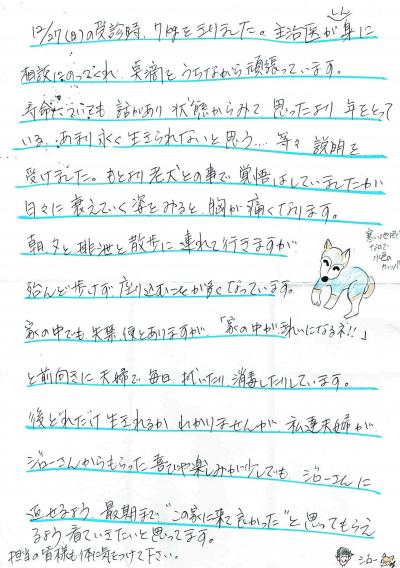 12/27(日)の受診時、7kgをきりました。主治医が身(しん)に
相談にのってくれ、点滴をうちながら頑張っています。
寿命についても話があり 状態からみて 思ったより 年をとって
いる、あまり永く生きられないと思う…等々 説明を
受けました。もとより老犬との事で覚悟はしていましたが
日々に衰えていく姿をみると、胸が痛くなります。
朝、夕と排泄と散歩に連れて行きますが
殆んど歩けず座り込むことが多くなっています。
寒い地域なので水色のカッパ
家の中でも失禁、便とありますが、「家の中がきれいになるネ!!」
と前向きに夫婦で毎日、拭いたり、消毒したりしています。
後どれだけ生きれるか わかりませんが 私達夫婦が
ジローさんからもらった喜びや楽しみが少しでも ジローさんに
返せるよう、最期まで“この家に来て良かった”と思ってもらえ
るよう看ていきたいと思ってます。
担当の皆様も体に気をつけて下さい。
ジロー